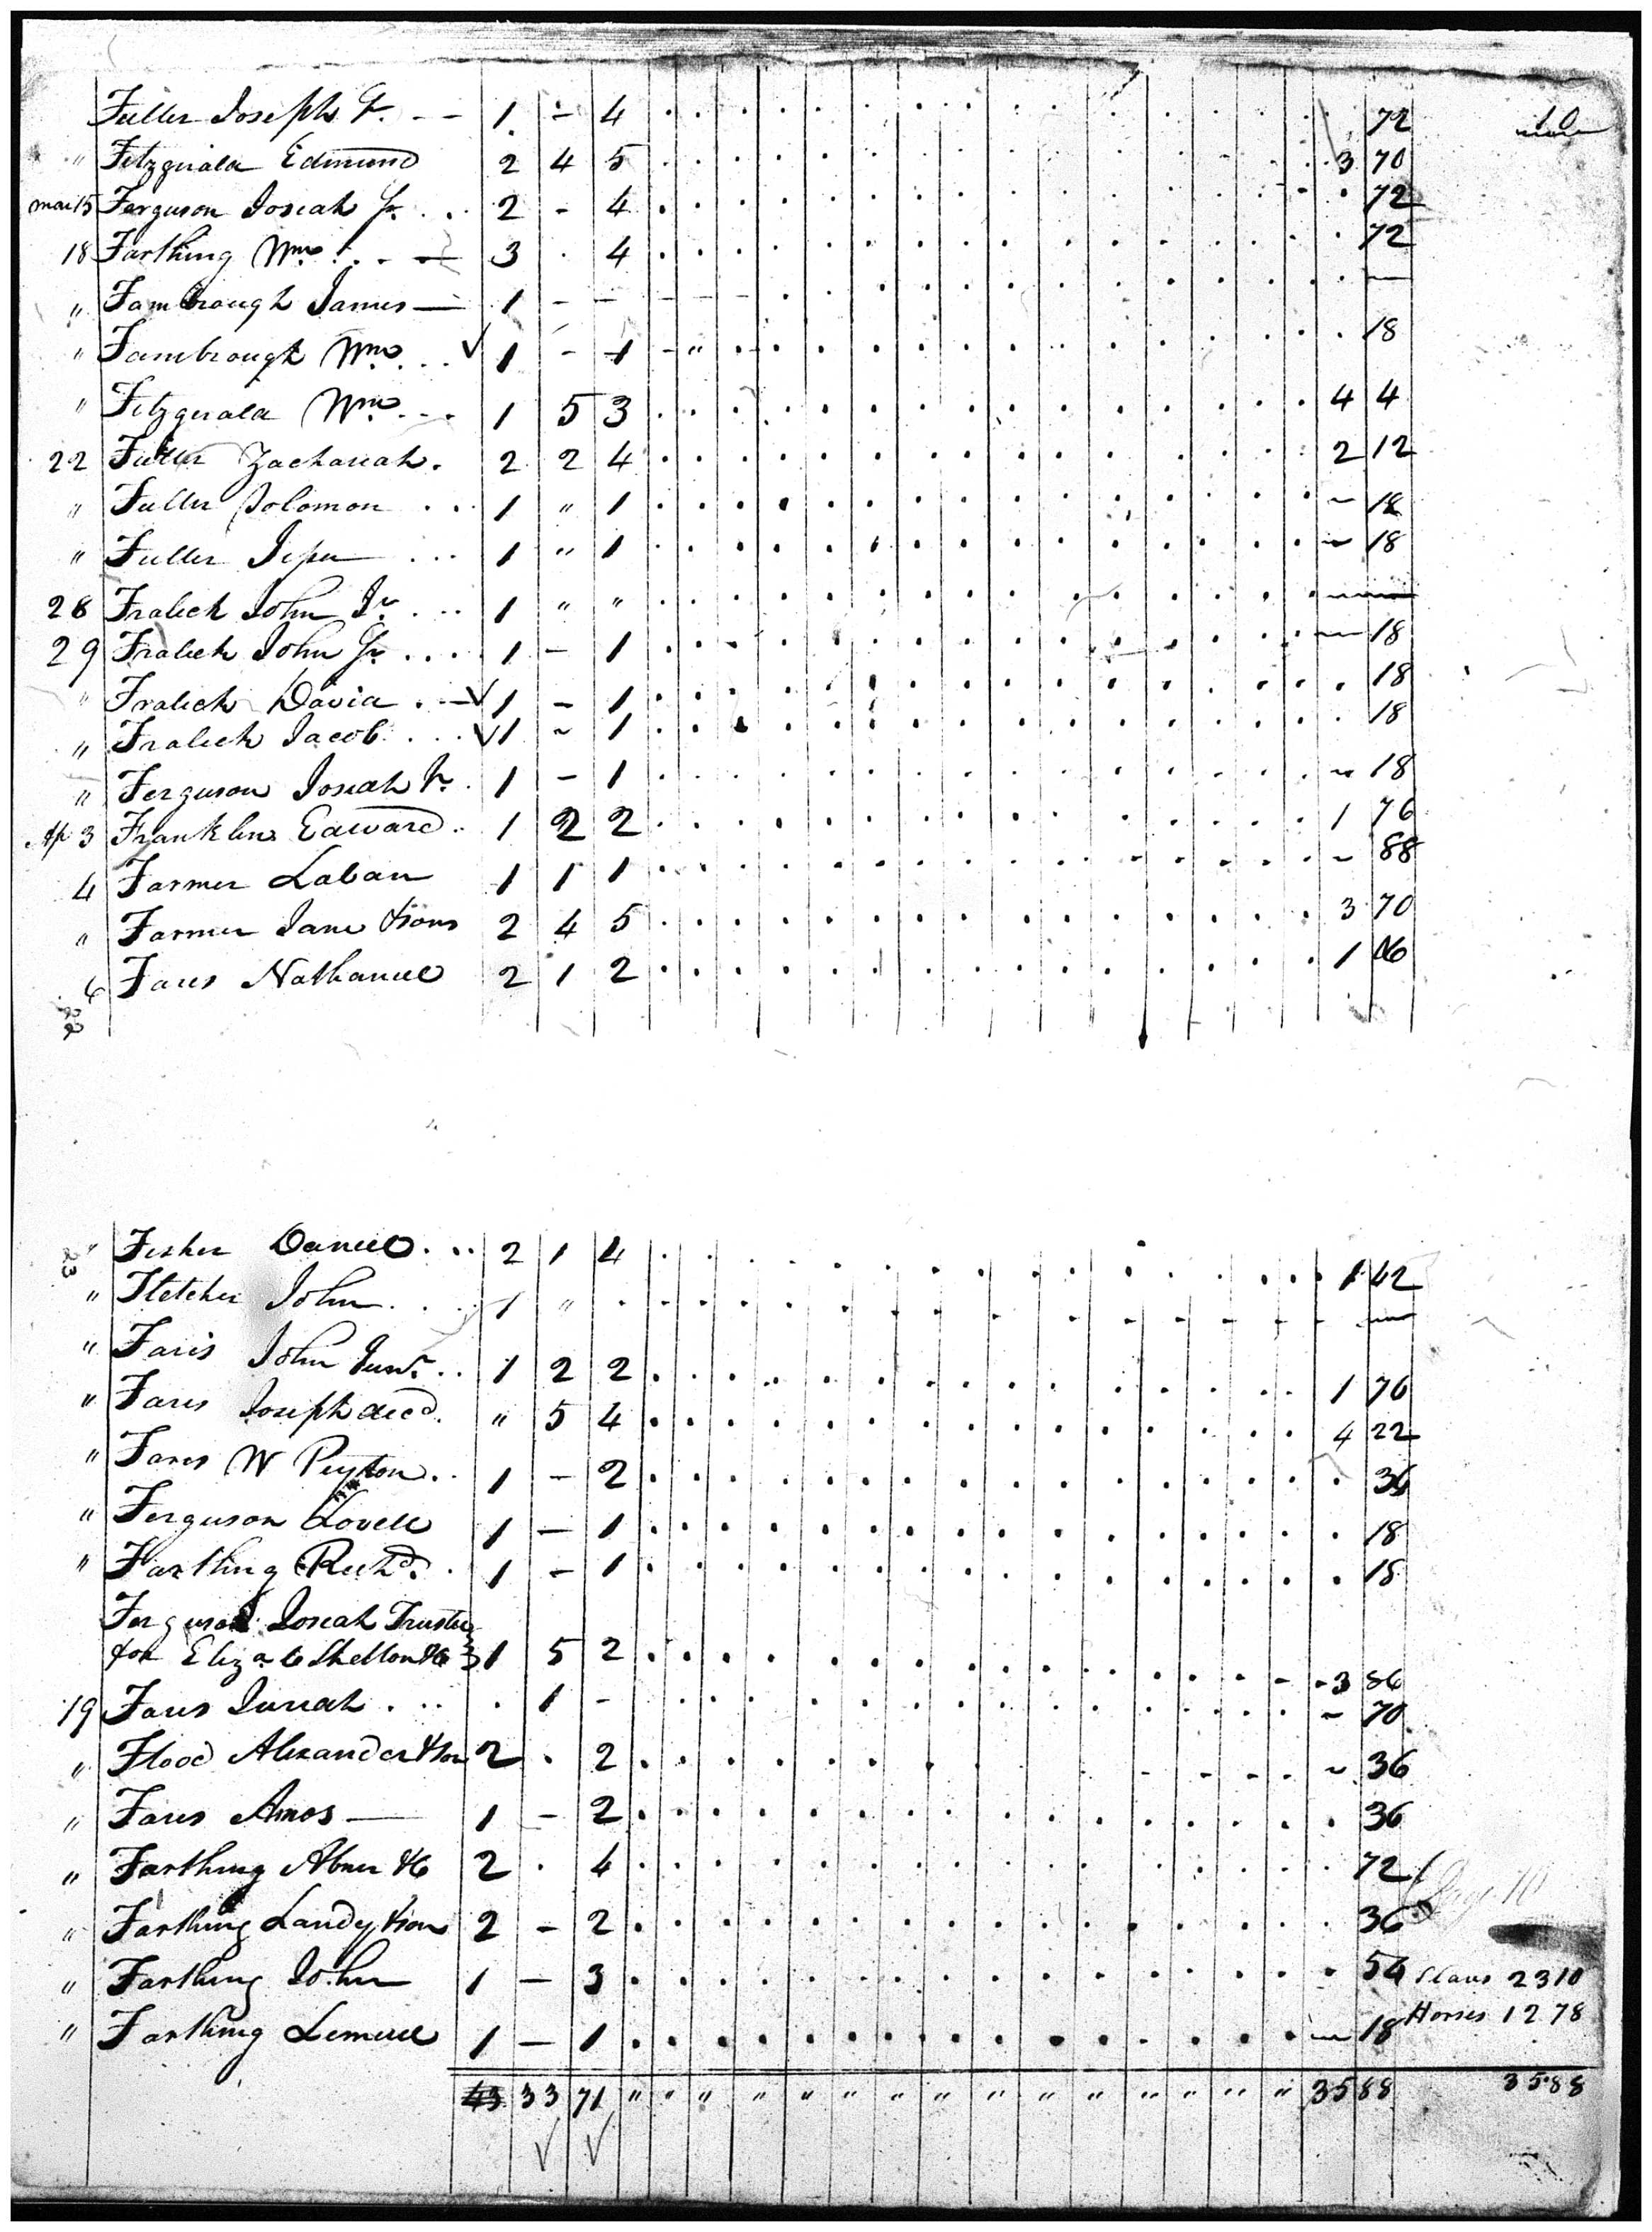 Fuller Joseph Jr. - - 1 - 4 . . . . . . . . . . . . . . 72
" Fitzgerald Edmund 2 4 5 . . . . . . . . . . . . . . 3 70
mar 15 Ferguson Josiah Sr. . . 2 - 4 . . . . . . . . . . . . . . 72
18 Farthing Wm. . . — 3 . 4 . . . . . . . . . . . . . . 72
" Fambrough James — 1 - - - - - . . . . . . . . . . . —
" Fambrough Wm. . . √ 1 - 1 - " . . . . . . . . . . . . 18
" Fitzgerald Wm. - . 1 5 3 . . . . . . . . . . . . . . 4 4
22 Fuller Zachariah . 2 2 4 . . . . . . . . . . . . . . 2 12
" Fuller Solomon . . 1 " 1 . . . . . . . . . . . . . . ~ 18
" Fuller Jesse . . . 1 " 1 . . . . . . . . . . . . . . ~ 18
28 Fralick John Jr. . . 1 " " . . . . . . . . . . . . . . —
29 Fralick John Sr. . . . 1 - 1 . . . . . . . . . . . . . . — 18
" Fralick David . - √ 1 - 1 . . . . . . . . . . . . . . 18
" Fralick Jacob . . . √ 1 ~ 1 . . . . . . . . . . . . . . 18
" Ferguson Josiah Jr. . 1 - 1 . . . . . . . . . . . . . . ~ 18
Ap 3 Franklin Edward . . 1 2 2 . . . . . . . . . . . . . . 1 76
4 Farmer Laban 1 1 1 . . . . . . . . . . . . . . ~ 88
" Farmer Jane & sons 2 4 5 . . . . . . . . . . . . . . 3 70
6 Faris Nathaniel 2 1 2 . . . . . . . . . . . . . . 1 06
23 " Fisher Daniel . . . 2 1 4 . . . . . . . . . . . . . . 1 42
" Fletcher John . . . 1 " . . . . . . . . . . . . . . —
" Faris John Junr. . . 1 2 2 . . . . . . . . . . . . . . 1 76
" Faris Joseph decd. " 5 4 . . . . . . . . . . . . . . 4 22
" Faris W Peyton . . 1 - 2 . . . . . . . . . . . . . . 36
" Ferguson Lovell 1 — 1 . . . . . . . . . . . . . . 18
" Farthing Richd. . 1 - 1 . . . . . . . . . . . . . . 18
Ferguson Josiah Trustee
for Elizab Shelton &c 1 5 2 . . . . . . . . . . . . . . 3 86
19 Faris . . . . 1 - . . . . . . . . . . . . . . ~ 70
" Flood Alexander & son 2 . 2 . . . . . . . . . . . . . . ~ 36
" Faris Amos — 1 - 2 . . . . . . . . . . . . . . 36
" Farthing Abner &c 2 . 4 . . . . . . . . . . . . . . 72
" Farthing Landy & son 2 - 2 . . . . . . . . . . . . . . 36
" Farthing John 1 — 3 . . . . . . . . . . . . . . 54 Slaves 23 10
" Farthing Lemuel 1 — 1 . . . . . . . . . . . . . . — 18 Horses 12 78
43 33 71 " " " " " " " " " " " " " " 35 88 35 88
√ √